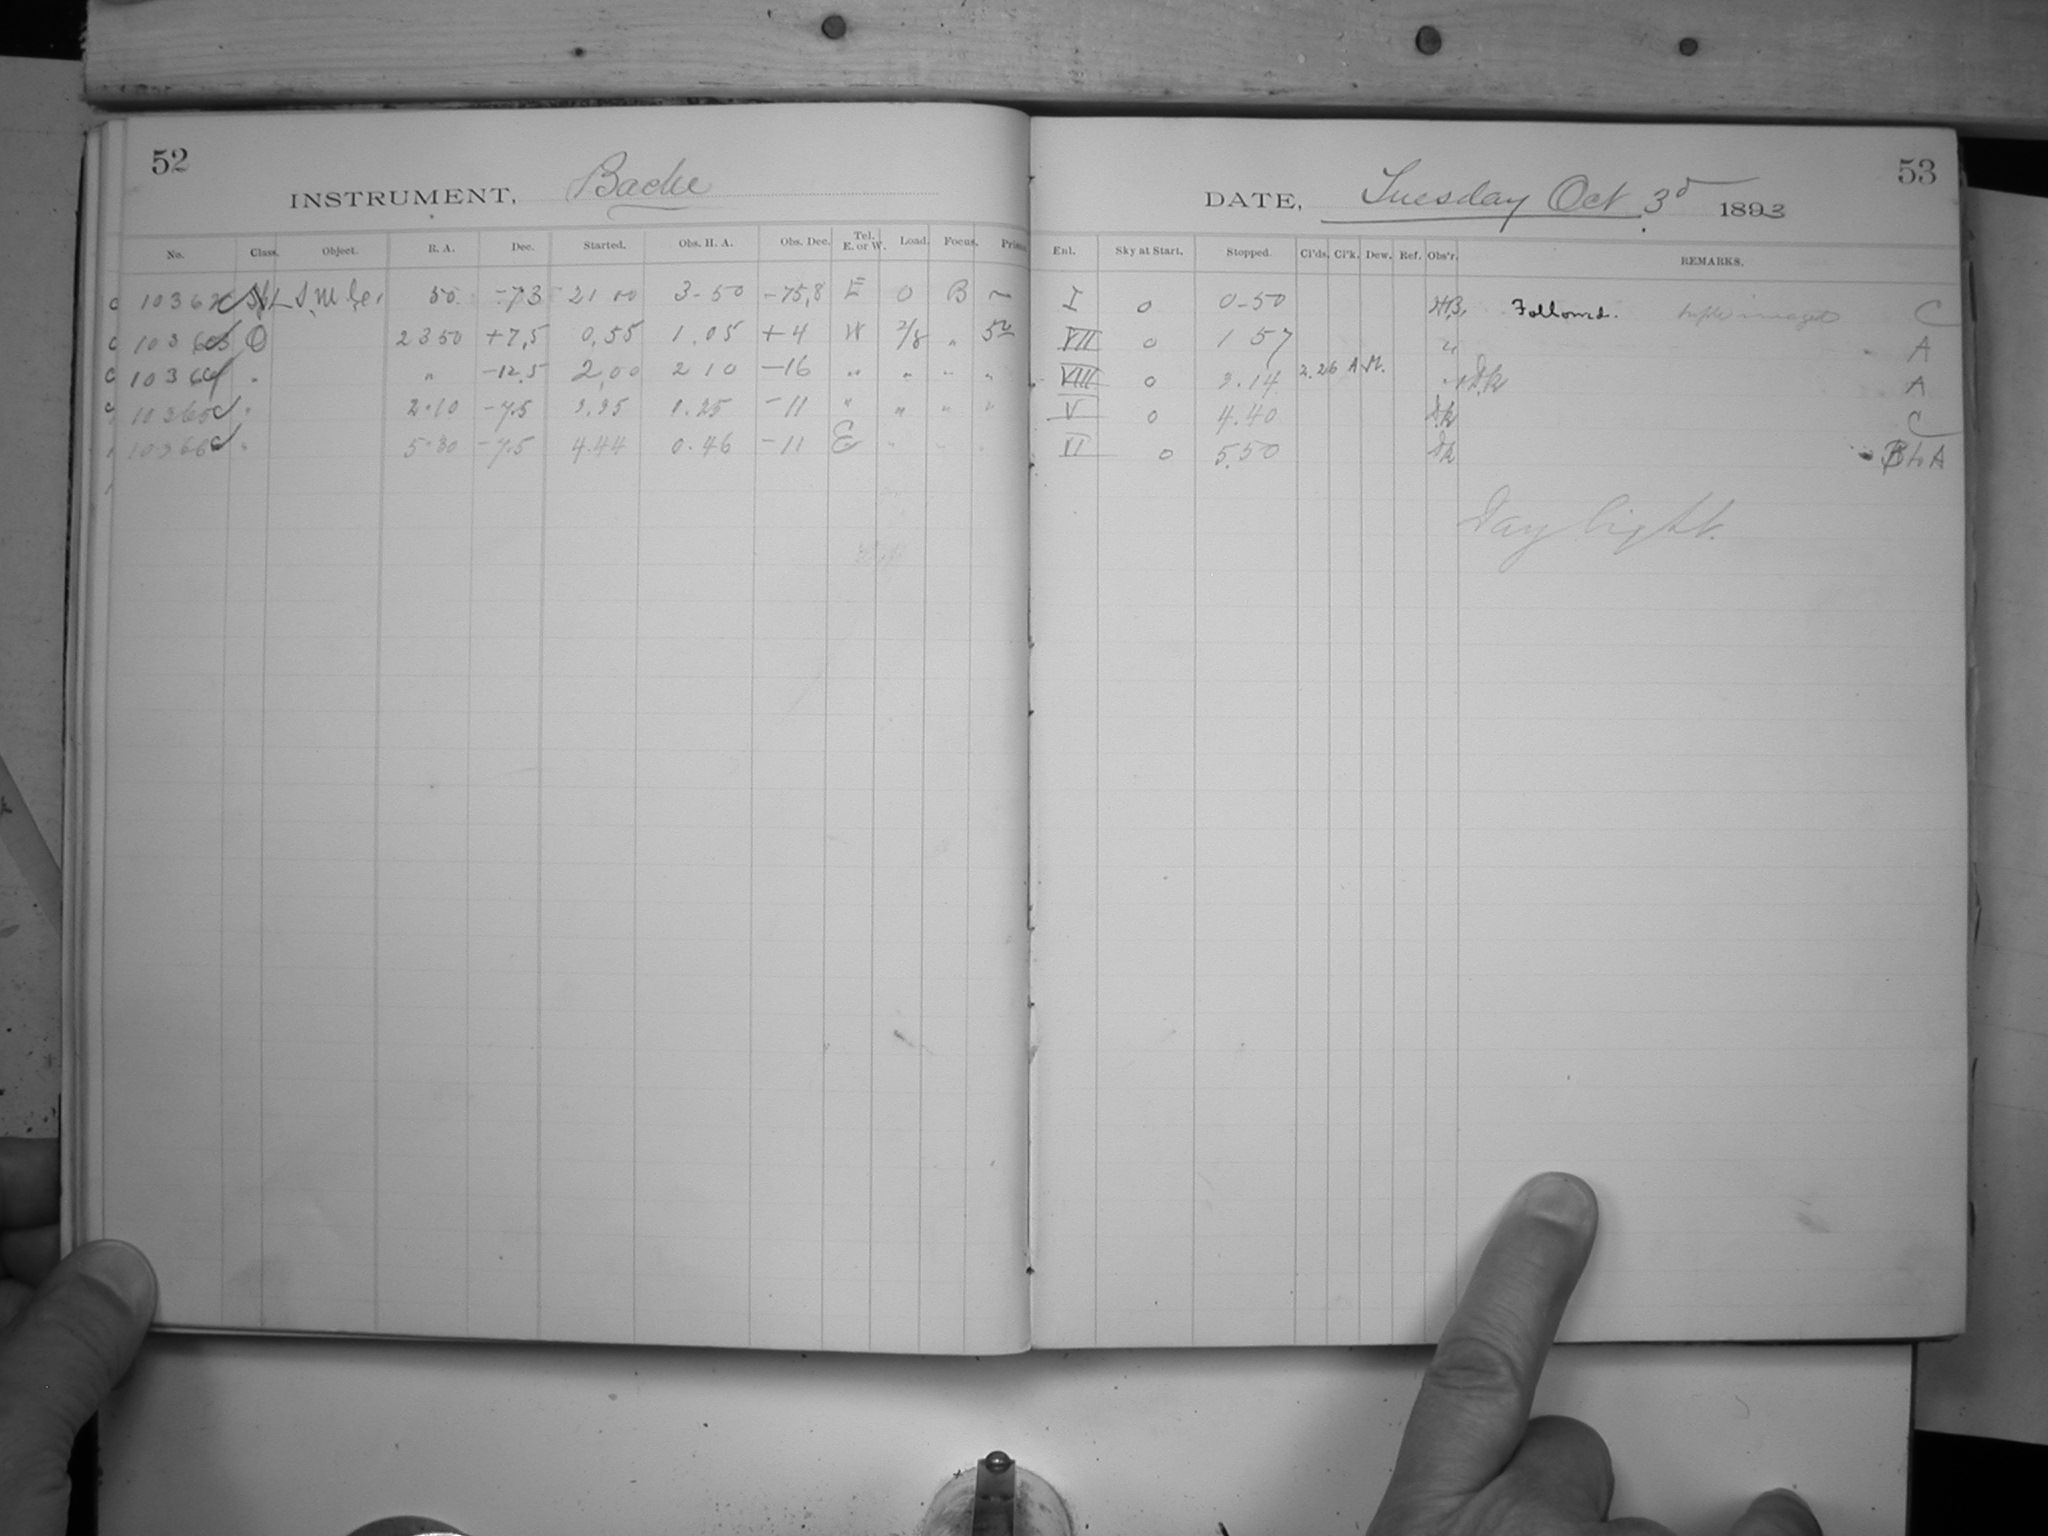 52
INSTRUMENT, Bache
No. Class. Object. R. A. Dec. Started. Obs. H. A. Obs. Dec. Tel. E. or W. Load. Focus. Prism
10362 50 -73 21 00 3-50 -75,8 E 0 B ~
10363 O 2350 +7,5 0,55 1.05 +4 W 2/8 " 52
10364 " " -12.5 2,00 2 10 -16 " " " "
10365 " 2.10 -7.5 0.25 -11 " " " "
10366 " 5.30 -7.5 4.44 0.46 -11 E " " "
53
DATE, Tuesday Oct 3d 1893
Enl. Sky at Start. Stopped. Cl'ds. Cl'k. Dew. Ref. Obs'r. REMARKS.
I 0 0-50 Followed. C
VII 0 1 57 " A
VIII 0 3.14 2.26 A.M. A
V 0 4.40 C
VI 0 5.50 B to A
Day light.